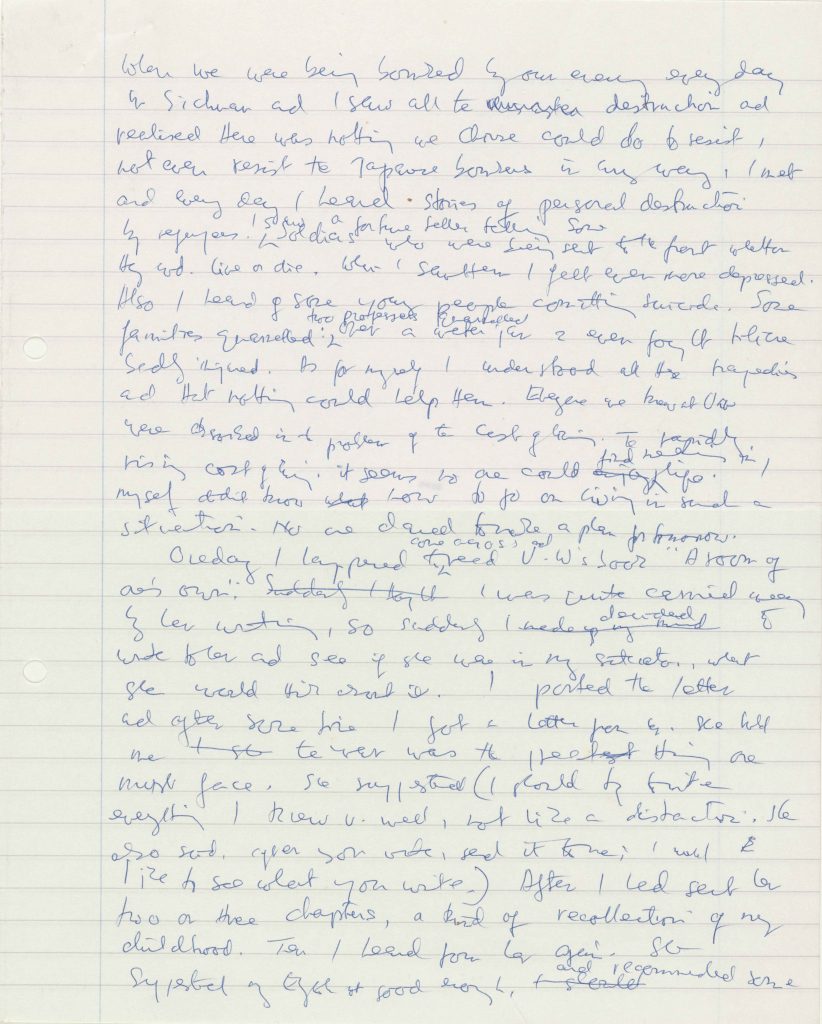 When we were being bombed by our enemy every day
in Sichuan and I saw all the destruction and
realised there was nothing we Chinese could do to resist,
not even resist the Japanese bombers in any way, I met
and every day I heard stories of personal destruction
by refugees. I saw a fortune teller telling some
soldiers who were being sent to the front whether
they wd. live or die. When I saw them I felt even more depressed.
Also I heard of some young people committing suicide. Some
families quarrelled; two professors quarrelled
over a water jar & even fought to be
badly injured. As for myself I understood all these tragedies
and that nothing could help them. Everyone we knew at
were absorbed in the problem of the cost of living. The rapidly
rising cost of living. it seems no one could find meaning in life. I
myself didn't know how to go on living in such a
situation. No one dared to make a plan for tomorrow.
One day I happened to come across and read V.W's book "A room of
one's own". Suddenly I thought I was quite carried away
by her writing, so suddenly I made up my mind decided to
write to her and see if she were in my situation, what
she would think about it. I posted the letter
and after some time I got a letter from her. She told
me the war was the greatest thing one
must face. She suggested (I should try to write
everything I knew v. well, not like a distraction. She
also said, after you write, send it to me; I would
like to see what you write.) After I had sent her
two or three chapters, a kind of recollection of my
childhood. Then I heard from her again. She
suggested my English not good enough, and recommended some